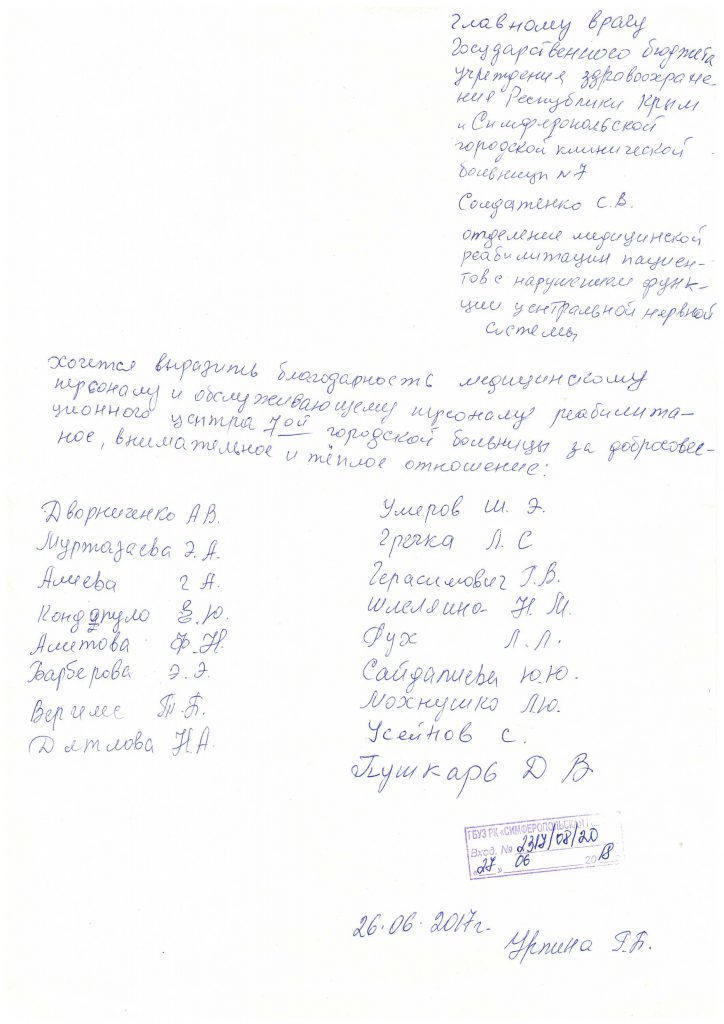 Главному врачу
Государственного бюджета
учреждения здравоохране-
ния Республики Крым
и Симферопольской
городской клинической
больницы №7
Солдатенко С.В.
отделение медицинской
реабилитации пациен-
тов с нарушением функ-
ции центральной нервной
системы
Хочется выразить благодарность медицинскому
персоналу и обслуживающему персоналу реабилита-
ционного центра 7ой городской больницы за добросовес-
ное, внимательное и тёплое отношение:
Дворниченко А.В.
Муртазаева Э.А.
Алиева Г А.
Кондоруло Е.Ю.
Аметова Ф.Н.
Барберова Э.Э.
Вергилес Т.Б.
Дятлова Н.А.
Умеров Ш. Э.
Гречка Л. С
Герасимович Г.В.
Шмеляино Н.М.
Фух Л.Л.
Сайдалиева Ю.Ю.
Мохнушко Л.Ю.
Усейнов С.
Пушкарь Д В
ГБУЗ РК «СИМФЕРОПОЛЬСКАЯ
Вход. № 2317/08/20
«27» 06 2018
26.06.2017г.
Урпина Г.Б.